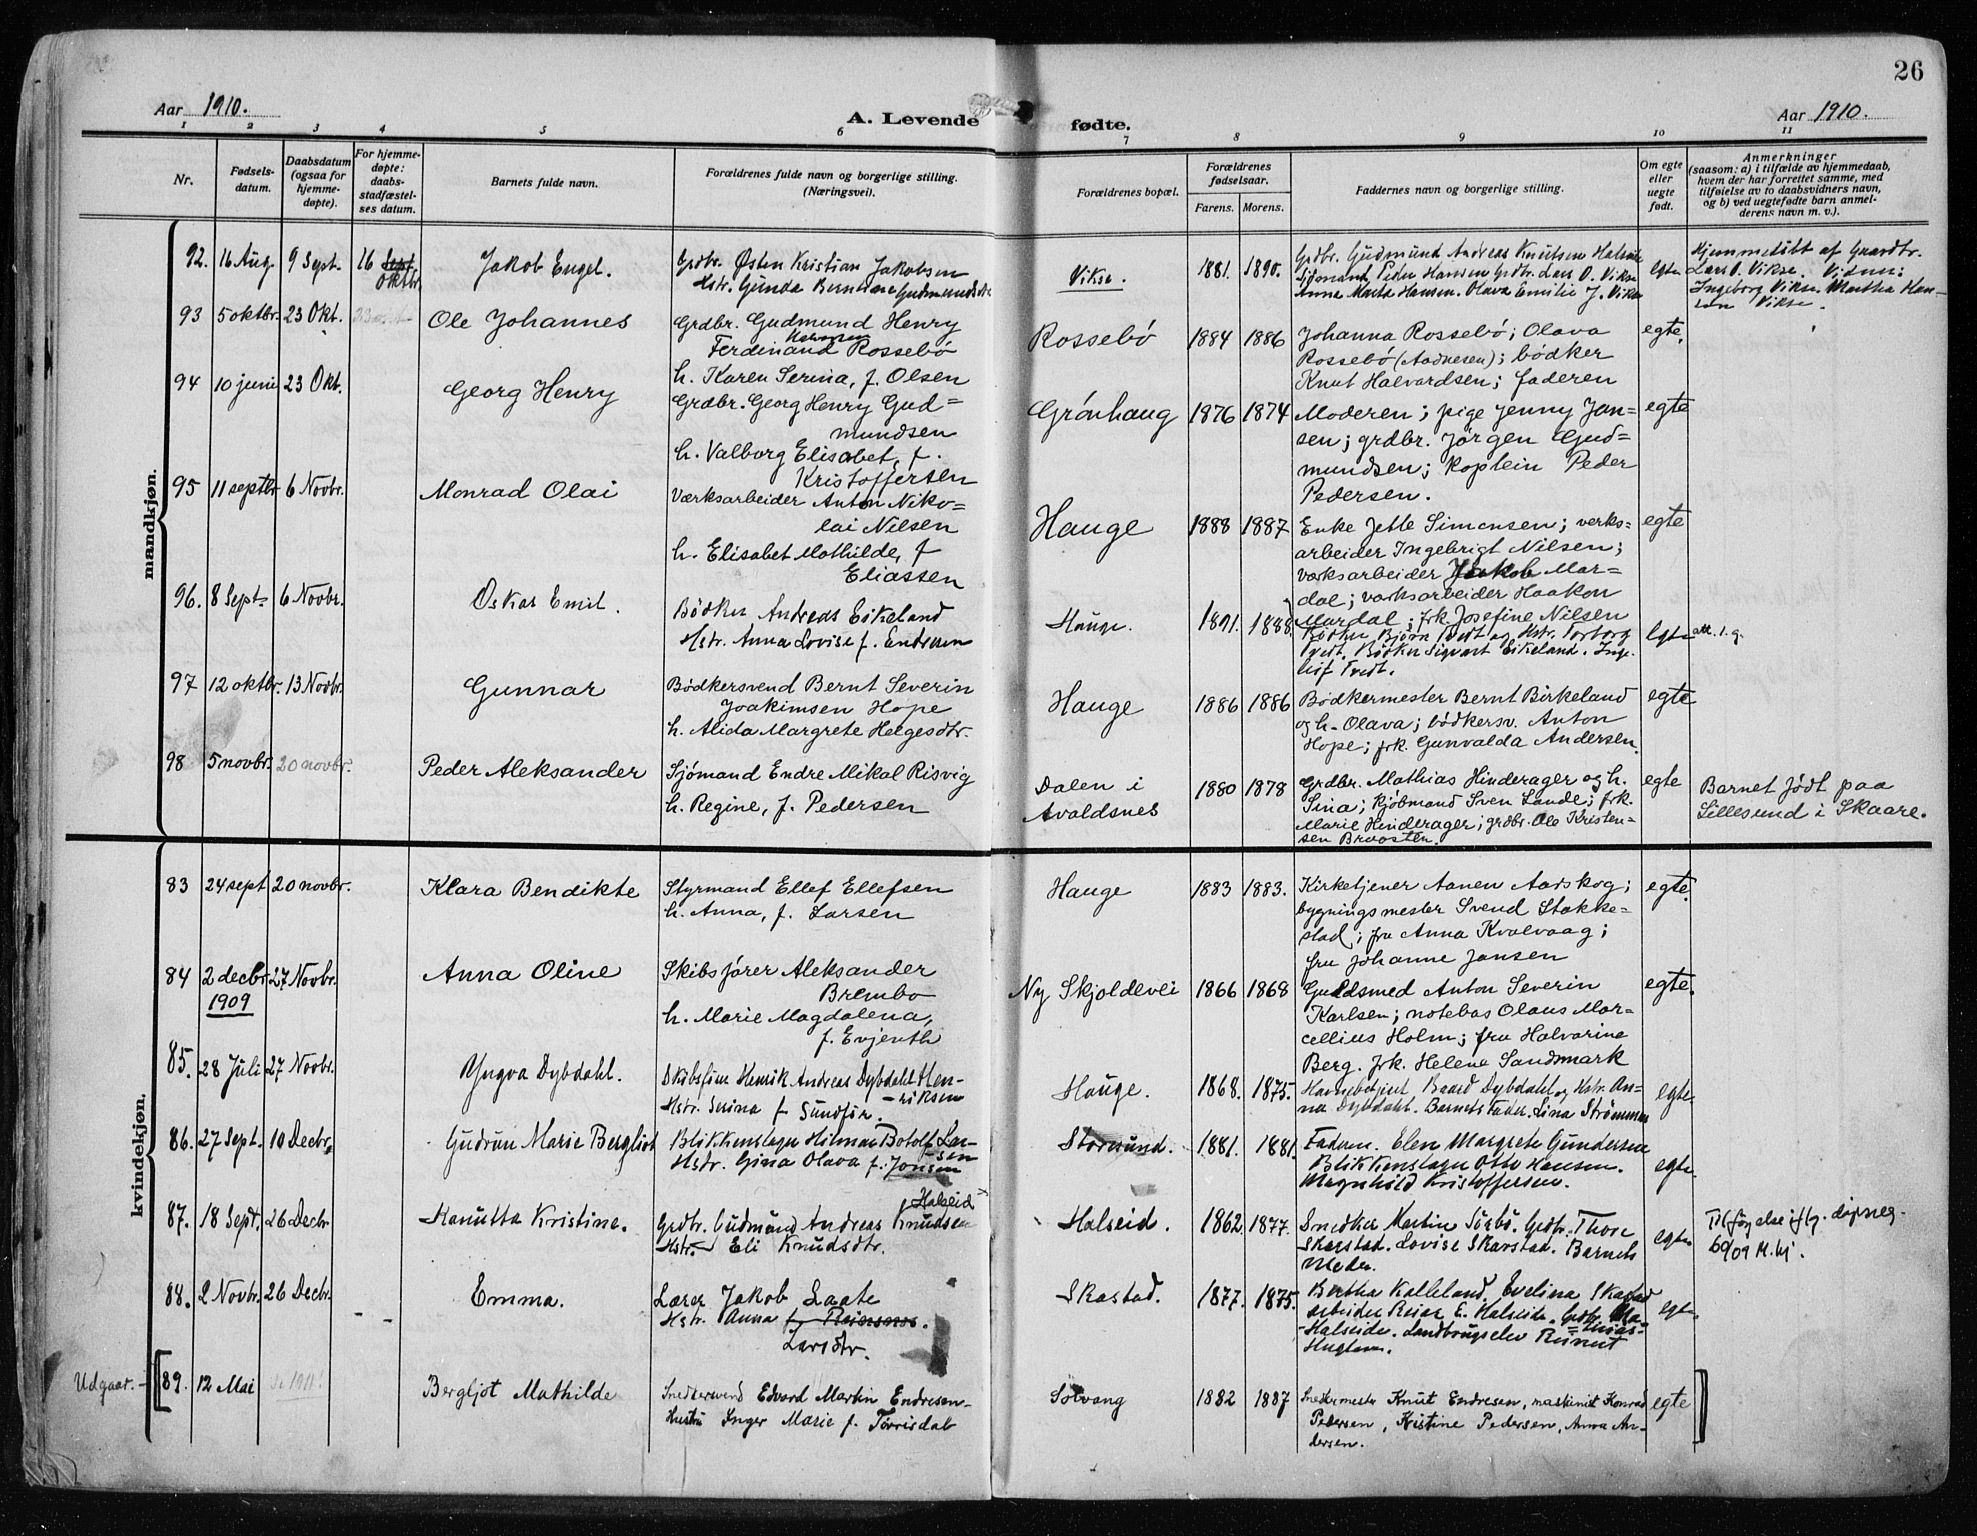 26
Aar 1910.
A. Levende fødte.
Aar 1910.
1 2 3 4 5 6 7 8 9 10 11
Nr.
Fødsels-
datum.
Daabsdatum
(ogsaa for
hjemme-
døpte).
For hjemme-
døpte:
daabs-
stadfæstel-
ses datum.
Barnets fulde navn.
Forældrenes fulde navn og borgerlige stilling.
(Næringsvei).
Forældrenes bopæl.
Forældrenes
fødselsaar.
Farens. Morens.
Faddernes navn og borgerlig stilling.
Om egte
eller
uegte
født.
Anmerkninger
(saasom: a) i tilfælde av hjemmedaab,
hvem der har forrettet samme, med
tilføielse av to daabsvidners navn,
og b) ved uegtefødte barn anmel-
derens navn m. v.).
mandkjøn.
92. 16 Aug. 9 Sept. 16 Sept Oktbr.
Jakob Engel.
Grdbr. Østen Kristian Jakobsen
Hstr. Gunda Bernerine Gudmundsdtr
Vikse.
1881. 1890.
Grdbr. Gudmund Andreas Knutsen Halseide
Sjømand Peder Hansen Grdbr. Lars O. Vikse
Anna Marta Hansen. Olava Emilie J. Vikse
Egte
Hjemmedøbt af Gaardbr.
Lars O. Vikse. Vidner:
Ingeborg Vikse. Martha Han-
sen Vikse.
93 5 oktbr. 23 Okt.
Ole Johannes
Grdbr. Gudmund Henry
Ferdinand Rossebö
h. Karen Serina, f. Olsen
Rossebö
1884 1886
Johanna Rossebö; Olava
Rossebö (Aadnesen); bödker
Knut Halvardsen; faderen
egte.
94 10 juni 23 Okt.
Georg Henry
Grdbr. Georg Henry Gud=
mundsen
h. Valborg Elisabet, f.
Kristoffersen
Grönhaug
1876 1874
Moderen; pige Jenny Jan=
sen; grdbr. Jörgen Gud=
mundsen; kaptein Peder
Pedersen.
egte
95 11 septbr 6 Novbr.
Monrad Olai
Værksarbeider Anton Niko=
lai Nilsen
h. Elisabet Mathilde, f
Eliassen
Hauge
1888 1887
Enke Jette Simonsen; verks=
arbeider Ingebrigt Nilsen;
værksarbeider Jakob Mar=
dal; værksarbeider Haakon
Mardal; frk Josefine Nilsen
egte
96. 8 Sept. 6 Novbr.
Oskar Emil.
Bödker Andreas Eikeland
Hstr. Anna Lovise f. Endresen
Hauge.
1891. 1888.
Bödker Björn Tvedt og Hstr. Torborg
Tvedt. Bödker Sigvart Eikeland. Inge-
leif Tvedt.
Egte
att. l. g.
97 12 oktbr. 13 Novbr.
Gunnar
Bödkersvend Bernt Severin
Joakimsen Hope
h. Alida Margrete Helgesdtr.
Hauge
1886 1886
Bödkermester Bernt Birkeland
og h. Olava; bödkersv. Anton
Hope; frk. Gunvalda Andersen.
egte
98 5 novbr. 20 novbr.
Peder Aleksander
Sjömand Endre Mikal Risvig
h. Regine, f. Pedersen
Dalen i
Avaldsnes
1880 1878
Grdbr. Mathias Hinderager og h.
Sina; kjöbmand Sven Lande; frk.
Marie Hinderager; grdbr. Ole Kristen=
sen Braasten.
egte
Barnet födt paa
Lillesund i Skaare.
kvindekjøn.
83 24 sept 20 novbr.
Klara Bendikte
Styrmand Ellef Ellefsen
h. Anna, f. Larsen
Hauge
1883 1883.
Kirketjener Aanen Aarskog;
bygningsmester Svend Stakke=
stad; fru Anna Kvalvaag;
fru Johanne Jansen
egte.
84 2 decbr 1909 27 Novbr.
Anna Oline
Skibsförer Aleksander
Brembo
h. Marie Magdalena,
f. Evjenth
Ny Skjoldevei
1866 1868
Guldsmed Anton Severin
Karlsen; notebas Olaus Mar=
cellius Holm; fru Halvarine
Berg. frk. Helene Sandmark
egte.
85. 28 Juli 27 Novbr.
Yngva Dybdahl.
Skibsförer Henrik Andreas Dybdahl Hen-
riksen
Hstr. Serina f Sundför.
Hauge.
1868. 1875.
Havnebetjent Baard Dybdahl og Hstr. An-
na Dybdahl. Barnets Fader. Lina Strömmen
Egte.
86. 27 Sept. 10 Decbr.
Gudrun Marie Bergliot
Blikkenslager Hilmar Botolf Lar-
sen
Hstr. Gina Olava f. Jonsen
Storesund.
1881. 1881.
Faderen. Elen Margrete Gundersen
Blikkenslager Otto Hansen.
Magnhild Kristoffersen.
Egte.
87. 18 Sept. 26 Decbr
Hanutta Kristine.
Grdbr. Gudmund Andreas Knudsen
Halseid
Hstr. Eli Knudsdtr.
Halseid.
1862 1877.
Snedker Martin Sörbö. Grdbr. Thore
Skarstad. Lovise Skarstad. Barnets
Moder.
Egte.
Tilföyelse iflg. dåpsreg.
60/09 M.kj.
88. 2 Novbr. 26 Decbr.
Emma.
Lærer Jakob Laate
Hstr. Anna
Larsdtr.
Skastad.
1877. 1875.
Bertha Kalleland. Evelina Skastad
arbeider Reiar E. Halseide. Grdbr. Ma-
thias
Halseide. Landbrugselev
Egte.
Udgaar. 89. 12 Mai
Bergljot Mathilde
Snedkersvend Edvard Martin Endresen
Hustru Inger Marie f. Torrisdal
Solvang
1882 1887
Snedkermester Knut Endresen, maskinist Konrad
Pedersen, Kristine Pedersen, Anna An-
dersen.
egte